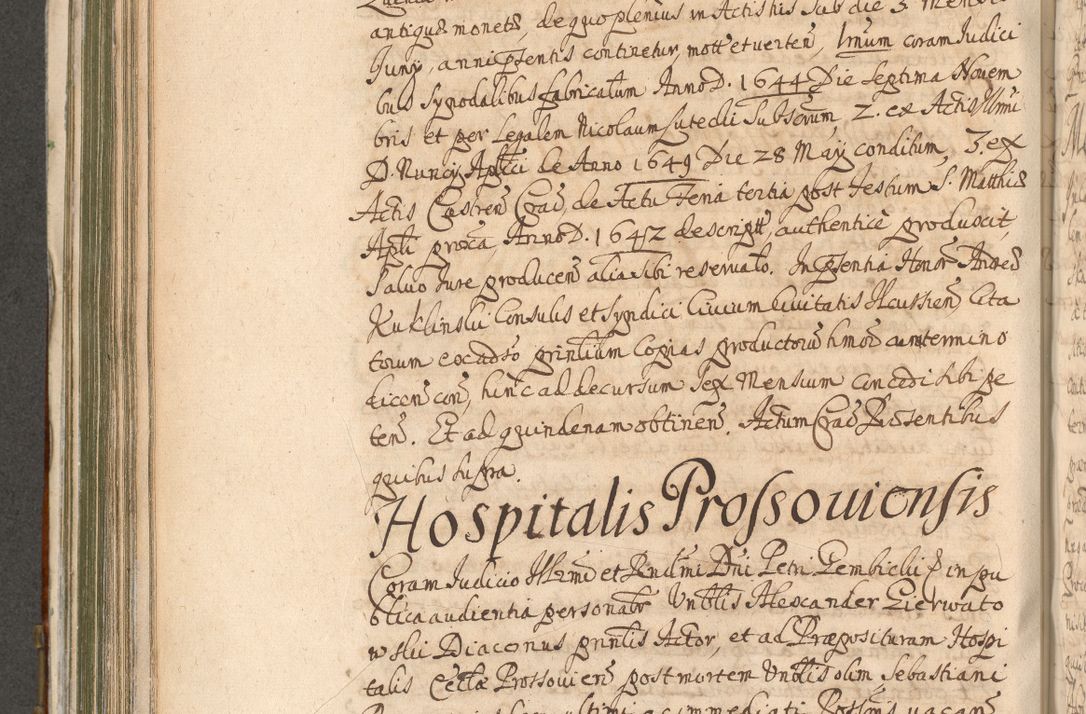 antiquæ monetæ, de quo plenius in Actis his sub die 3 Mensis
Juny, anni pntis continetur, mott' et verteñ, Imum coram Judici
bus Synodalibus fabricatum Anno D. 1644 Die Septima Novem
bris et per Legalem Nicolaum Subscrum, 2. ex Actis Illmi
D. Nuncy Aplici de Anno 1649 Die 28 May conditum, 3. ex
Actis Castreñ Craõ, de Actu Feria tertia post Festum S. Matthiæ
Apli proxa Anno D. 1642 descript, authenticè produxit,
Salvo Jure produceñ alia sibi reservato. In pñtia Honor Andreæ
Kuklinski Consulis et Syndici Civium Civitatis Ilcussieñ Cita
torum ex adso printium Copias productorũ hmoi cum termino
diceñ con, hinc ad decursum Sex Mensium concedi sibi pe
teñ. Et ad quindenam obtineñ. Actum Craõ Præsentibus
quibus supra.
Hospitalis Prossoviensis
Coram Judicio Illrmi et Rndmi Dni Petri Gembicki E in pu
blica audientia personalr Vnblis Alexander Zierwato
wski Diaconus prinlis Actor, et ad Præposituram Hospi
talis Ecclæ Prossovieñ post mortem Vnblis olim Sebastiani
ultimi ac immediati Possoris vacañ